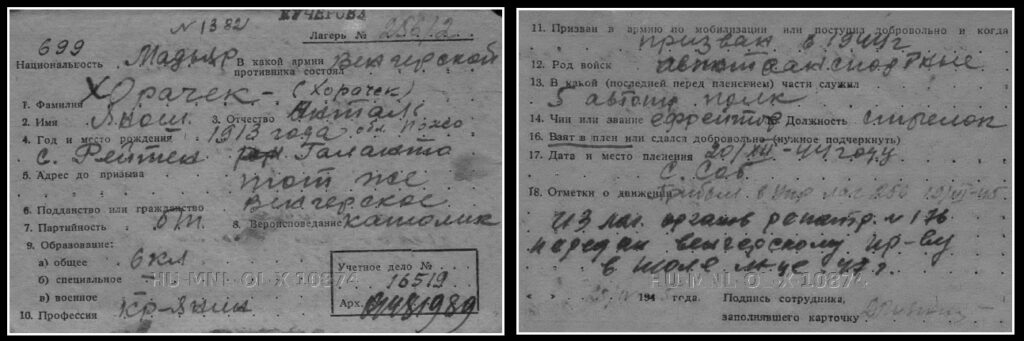 КУЧЕРОВА
N 1382
Лагерь № 250/2
699
Национальность Мадьяр В какой армии противника состоял Венгерской
1. Фамилия Хорачек - (Хорачек)
2. Имя Янош 3. Отчество Антал
4. Год и место рождения 1913 года обл.
с. Галанта
5. Адрес до призыва тот же
6. Подданство или гражданство Венгерское
7. Партийность б/п 8. Вероисповедание католик
9. Образование:
а) общее 6 кл
б) специальное
в) военное
10. Профессия кр-янин
Учетное дело № 16519
Арх. 01481989
HU MNL OL X 10874
11. Призван в армию по мобилизации или поступил добровольно и когда
призван в 1944г
12. Род войск автотранспортные
13. В какой (последней перед пленением) части служил
5 автотр полк
14. Чин или звание ефрейтор 15. Должность стрелок
16. Взят в плен или сдался добровольно (нужное подчеркнуть)
17. Дата и место пленения 20/XII-44 году
с. Соб
18. Отметки о движении Прибыл в Упр лаг 250
Из лаг. органов репатр. № 176
передан венгерскому пр-ву
в июле м-це 47 г.
HU MNL OL X 10874
194 года. Подпись сотрудника,
заполнявшего карточку